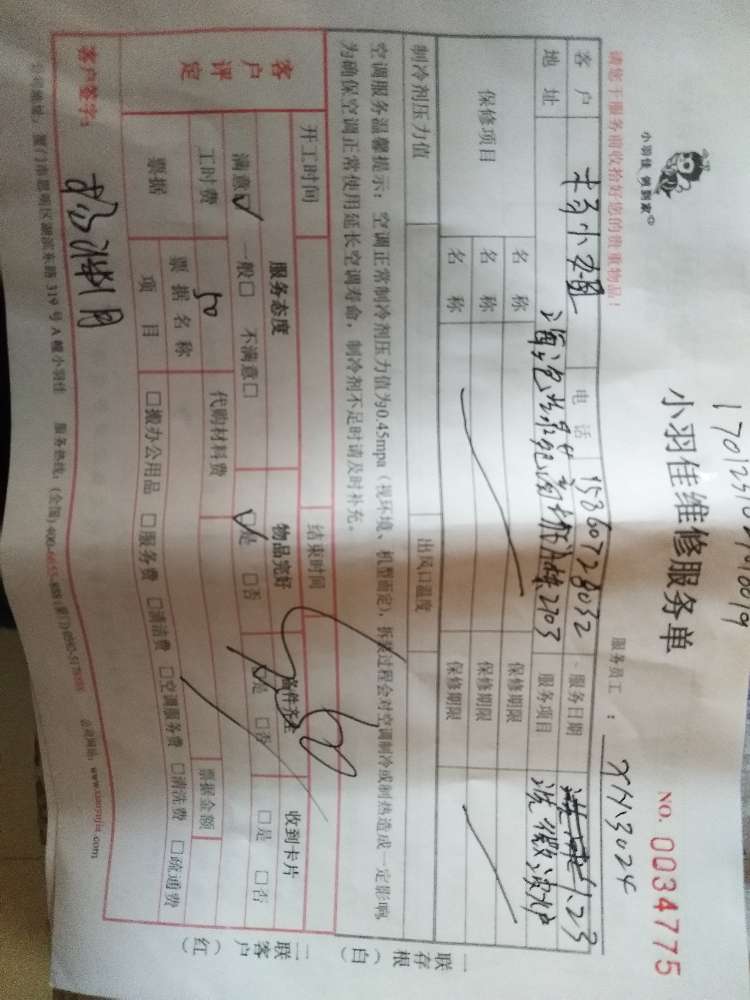 小羽佳 例到家
小羽佳维修服务单
NO. 0034775
请您于服务前收拾好您的贵重物品!
服务员工: XN3024
客户 电话 15860728032 服务日期 1.23
地址 服务项目 洗微波炉
保修项目 名称 保修期限
名称 保修期限
名称 保修期限
制冷剂压力值 出风口温度
空调服务温馨提示: 空调正常制冷剂压力值为0.45mpa (视环境、机型而定), 拆装过程会对空调制冷或制热造成一定影响,
为确保空调正常使用延长空调寿命, 制冷剂不足时请及时补充。
开工时间 结束时间
客户评定 服务态度 物品完好 备件齐全 收到卡片
满意☑ 一般□ 不满意□ ☑是 □否 ☑是 □否 □是 □否
工时费 50 代购材料费
票据 票据名称 票据金额
项目 □搬办公用品 □服务费 □清洁费 □空调服务费 □清洗费 □疏通费
客户签字:
厦门市思明区湖滨东路 319 号 A 幢小羽佳 服务热线:
一联存根(白)
二联客户(红)